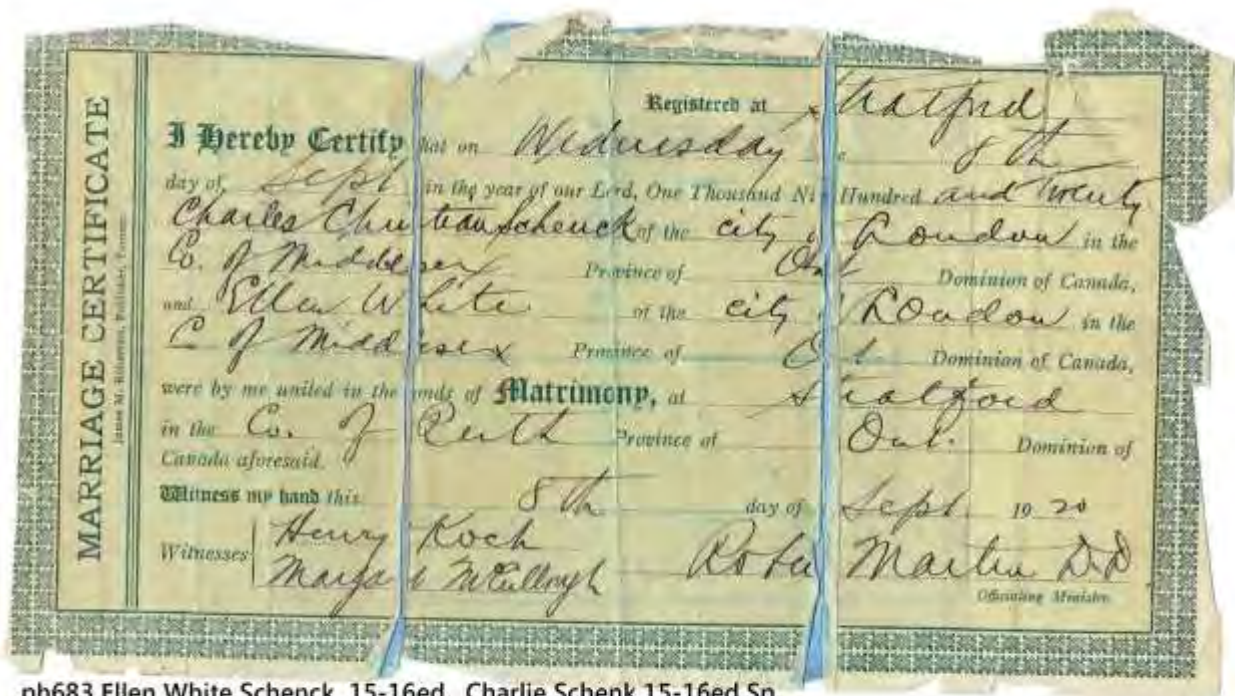 MARRIAGE CERTIFICATE
Registered at Stratford
I Hereby Certify hat on Wednesday e 8th
day of Sept in the year of our Lord, One Thousand Ni Hundred and Twenty
Charles Christian Schenck of the city London in the
Co. of Middlesex Province of Ont Dominion of Canada,
and Ellen White of the city London in the
C of Middlesex Province of Ont. Dominion of Canada,
were by me united in the onds of Matrimony, at Stratford
in the Co. of Perth Province of Ont. Dominion of
Canada aforesaid.
Witness my hand this 8th day of Sept. 1920
Witnesses Henry Koch
Marga t McCullough Rober Martin D.D
Officiating Minister
ph683 Ellen White Schenck 15-16ed , Charlie Schenk 15-16ed Sp